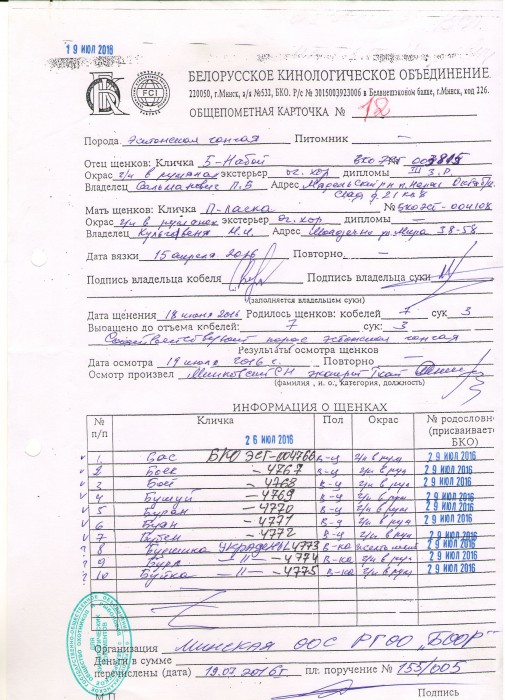 19 ИЮЛ 2016
FCI
БЕЛОРУССКОЕ КИНОЛОГИЧЕСКОЕ ОБЪЕДИНЕНИЕ
220050, г.Минск, а/я №532, БКО. Р/с № 3015003923006 в Белвнешэконом банке, г.Минск, код 226.
ОБЩЕПОМЕТНАЯ КАРТОЧКА № 12
Порода Эстонская гончая Питомник —
Отец щенков: Кличка Б-Набой
Окрас ч/п в румянах экстерьер оч. хор дипломы III З.Р.
Владелец Адрес
Мать щенков: Кличка П-Ласка № БКОЭСТ-004108
Окрас ч/п в румянах экстерьер оч. хор дипломы —
Владелец Адрес Мира 38-58
Дата вязки 15 апреля 2016 Повторно —
Подпись владельца кобеля Подпись владельца суки
(заполняется владельцем суки)
Дата щенения 18 июня 2016 Родилось щенков: кобелей 7 сук 3
Выращено до отъема кобелей: 7 сук: 3
Соответствуют породе эстонская гончая
Результаты осмотра щенков
Дата осмотра 19 июля 2016 г. Повторно
Осмотр произвел Минковский СН эксперт
(фамилия , и. о., категория, должность)
ИНФОРМАЦИЯ О ЩЕНКАХ
№ п/п Кличка Пол Окрас № родословн (присваивает БКО)
26 ИЮЛ 2016
1 Бас БКО ЭСТ-004766 к-ц ч/п в рум 29 ИЮЛ 2016
2 Боек — 4767 к-ц ч/п в рум 29 ИЮЛ 2016
3 Бой — 4768 к-ц ч/п в рум 29 ИЮЛ 2016
4 Бушуй — 4769 к-ц ч/п в рум 29 ИЮЛ 2016
5 Буран — 4770 к-ц ч/п в рум 29 ИЮЛ 2016
6 Буян — 4771 к-ц ч/п в рум 29 ИЮЛ 2016
7 — 4772 к-ц ч/п в рум 29 ИЮЛ 2016
8 4773 к-ка 29 ИЮЛ 2016
9 Бура — 4774 к-ка ч/п в рум 29 ИЮЛ 2016
10 Буйка — 4775 к-ка ч/п в рум 29 ИЮЛ 2016
Организация Минская ООС РГОО „БООР"
Деньги в сумме
перечислены (дата) 19.07.2016г пл. поручение № 153/005
М П Подпись